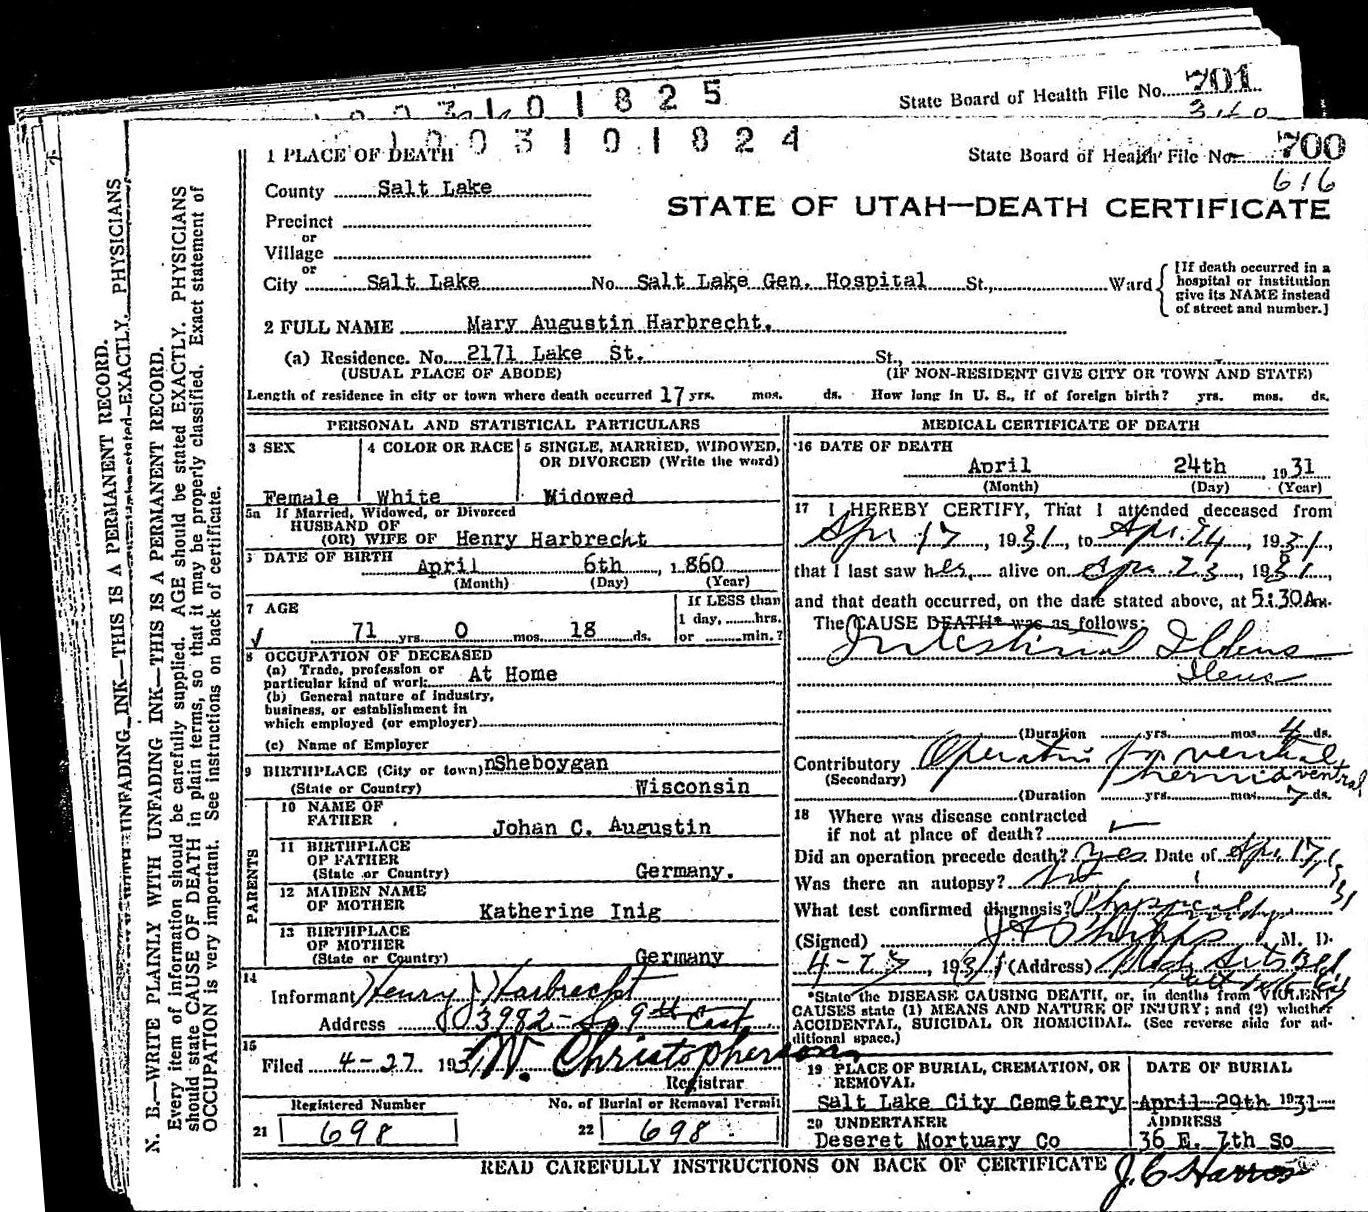 1003101825
State Board of Health File No. 701
3460
1003101824
1 PLACE OF DEATH
State Board of Health File No. 700
616
County Salt Lake
STATE OF UTAH—DEATH CERTIFICATE
Precinct
or
Village
or
City Salt Lake No. Salt Lake Gen. Hospital St., Ward
[If death occurred in a
hospital or institution
give its NAME instead
of street and number.]
2 FULL NAME Mary Augustin Harbrecht.
(a) Residence. No. 2171 Lake St. St.,
(USUAL PLACE OF ABODE) (IF NON-RESIDENT GIVE CITY OR TOWN AND STATE)
Length of residence in city or town where death occurred 17 yrs. mos. ds. How long in U. S., if of foreign birth? yrs. mos. ds.
PERSONAL AND STATISTICAL PARTICULARS
3 SEX
Female
4 COLOR OR RACE
White
5 SINGLE, MARRIED, WIDOWED,
OR DIVORCED (Write the word)
Widowed
5a If Married, Widowed, or Divorced
HUSBAND OF
(OR) WIFE OF Henry Harbrecht
6 DATE OF BIRTH April 6th, 1860
(Month) (Day) (Year)
7 AGE
71 yrs 0 mos. 18 ds.
If LESS than
1 day, hrs.
or min.?
8 OCCUPATION OF DECEASED
(a) Trade, profession or
particular kind of work At Home
(b) General nature of industry,
business, or establishment in
which employed (or employer)
(c) Name of Employer
9 BIRTHPLACE (City or town) nSheboygan
(State or Country) Wisconsin
PARENTS
10 NAME OF
FATHER Johan C. Augustin
11 BIRTHPLACE
OF FATHER
(State or Country) Germany.
12 MAIDEN NAME
OF MOTHER Katherine Inig
13 BIRTHPLACE
OF MOTHER
(State or Country) Germany
14
Informant Henry J Harbrecht
Address 3982 - So 9th East
15
Filed 4-27 1931 W. Christopherson
Registrar
Registered Number No. of Burial or Removal Permit
21 698 22 698
MEDICAL CERTIFICATE OF DEATH
16 DATE OF DEATH
April 24th, 1931
(Month) (Day) (Year)
17 I HEREBY CERTIFY, That I attended deceased from
Apr 17, 1931, to Apr. 24, 1931,
that I last saw her alive on Apr. 23, 1931,
and that death occurred, on the date stated above, at 5:30 A m.
The CAUSE DEATH* was as follows:
Intestinal Illeus
Ileus
(Duration yrs. mos. 4 ds.
Contributory Operation for ventral
(Secondary) hernia ventral
(Duration yrs. mos. 7 ds.
18 Where was disease contracted
if not at place of death?
Did an operation precede death? yes Date of Apr. 17, 1931
Was there an autopsy? No
What test confirmed diagnosis? Physical
(Signed) Phipps M. D.
4-27, 1931 (Address) Med Arts Bld
Salt Lake City
*State the DISEASE CAUSING DEATH, or, in deaths from VIOLENT
CAUSES state (1) MEANS AND NATURE OF INJURY; and (2) whether
ACCIDENTAL, SUICIDAL OR HOMICIDAL. (See reverse side for ad-
ditional space.)
19 PLACE OF BURIAL, CREMATION, OR
REMOVAL
Salt Lake City Cemetery
DATE OF BURIAL
April 29th 1931
20 UNDERTAKER
Deseret Mortuary Co
ADDRESS
36 E. 7th So
READ CAREFULLY INSTRUCTIONS ON BACK OF CERTIFICATE
N. B.—WRITE PLAINLY WITH UNFADING INK—THIS IS A PERMANENT RECORD.
Every item of information should be carefully supplied. AGE should be stated EXACTLY. PHYSICIANS
should state CAUSE OF DEATH in plain terms, so that it may be properly classified. Exact statement of
OCCUPATION is very important. See instructions on back of certificate.
UNFADING INK—THIS IS A PERMANENT RECORD.
stated EXACTLY. PHYSICIANS